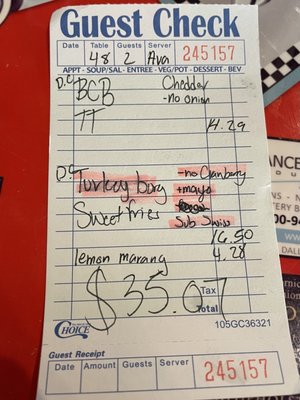 Guest Check
Date Table Guests Server
48 2 Ava 245157
APPT - SOUP/SAL - ENTREE - VEG/POT - DESSERT - BEV
D.C. BCB Cheddar
-no onion
TT
14.29
DC Turkey burg -no Cranberry
+mayo
Sweet fries Sub Swiss
16.50
lemon marang 4.28
$35.07
Tax
Total
CHOICE 105GC36321
Guest Receipt
Date Amount Guests Server
245157